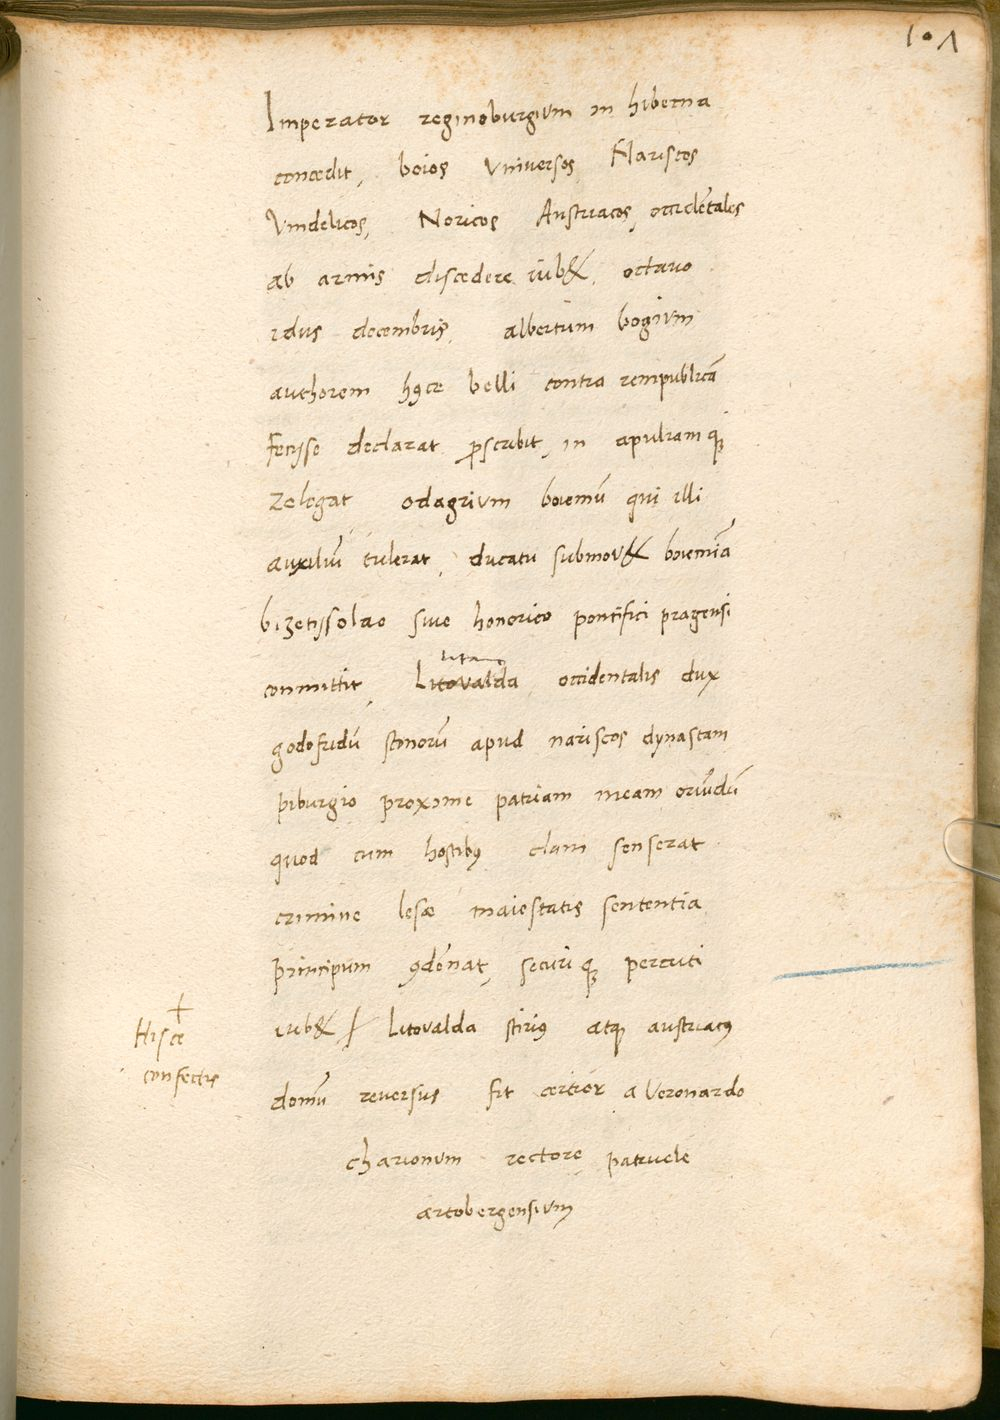 101
Imperator reginoburgium in hiberna
concedit, boios Vniversos, Nariscos
Vindelicos, Noricos Austriacos, occidētales
ab armis discedere iub&, octauo
idus decembris, albertum bogium
authorem hꝯce belli contra rempublicā
fecisse declarat, ꝓscribit, in apuliamqꝫ
relegat odagrium boiemū qui illi
auxiliū tulerat, ducatu submov& boiemia
brzetissolao siue honorico pontifici pragensi
committit, Litovalda occidentalis dux
godofridū stonorū apud nariscos dynastam
piburgio proxime patriam meam oriūdū
quod cum hostibꝰ clam senserat
crimine lesæ maiestatis sententia
principum ꝯdēnat, securiqꝫ percuti
iub& / Litovalda stiriꝰ atqꝫ austriacꝰ
Hisce
confectis
domū reversus fit certior a Veronardo
charionum rectore patruele
artobergensium